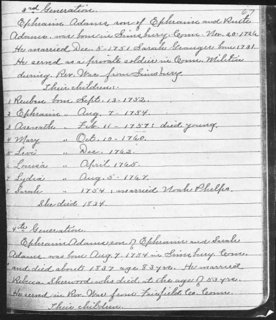 67
3rd Generation.
Ephraim Adams, son of Ephraim and Ruste
Adams was born in Simsbury Conn. Nov.
He married Dec. 5-1751 Sarah born 1731.
He served as a private soldier in Conn. Militia
during Rev. War from Simsbury
Their children:
1 Reuben born Sept. 13-1752.
2 Ephraim " Aug. 7-1754.
3 " Feb. 11-1757: died young.
4 Mary " Oct. 10-1760.
5 Levi " Dec. 1762.
6 " April 1765.
7 Lydia " Aug. 5-1767.
8 Sarah " married Noah Phelps.
She died 1834.
4th Generation.
Ephraim Adams, son of Ephraim and Sarah
Adams was born Aug. 7-1754 in Simsbury Conn.
and died about 1837 age 83 yrs. He married
Rebecca Sherwood who died at the age of yrs.
He served in Rev. War from Fairfield Co. Conn.
Their children